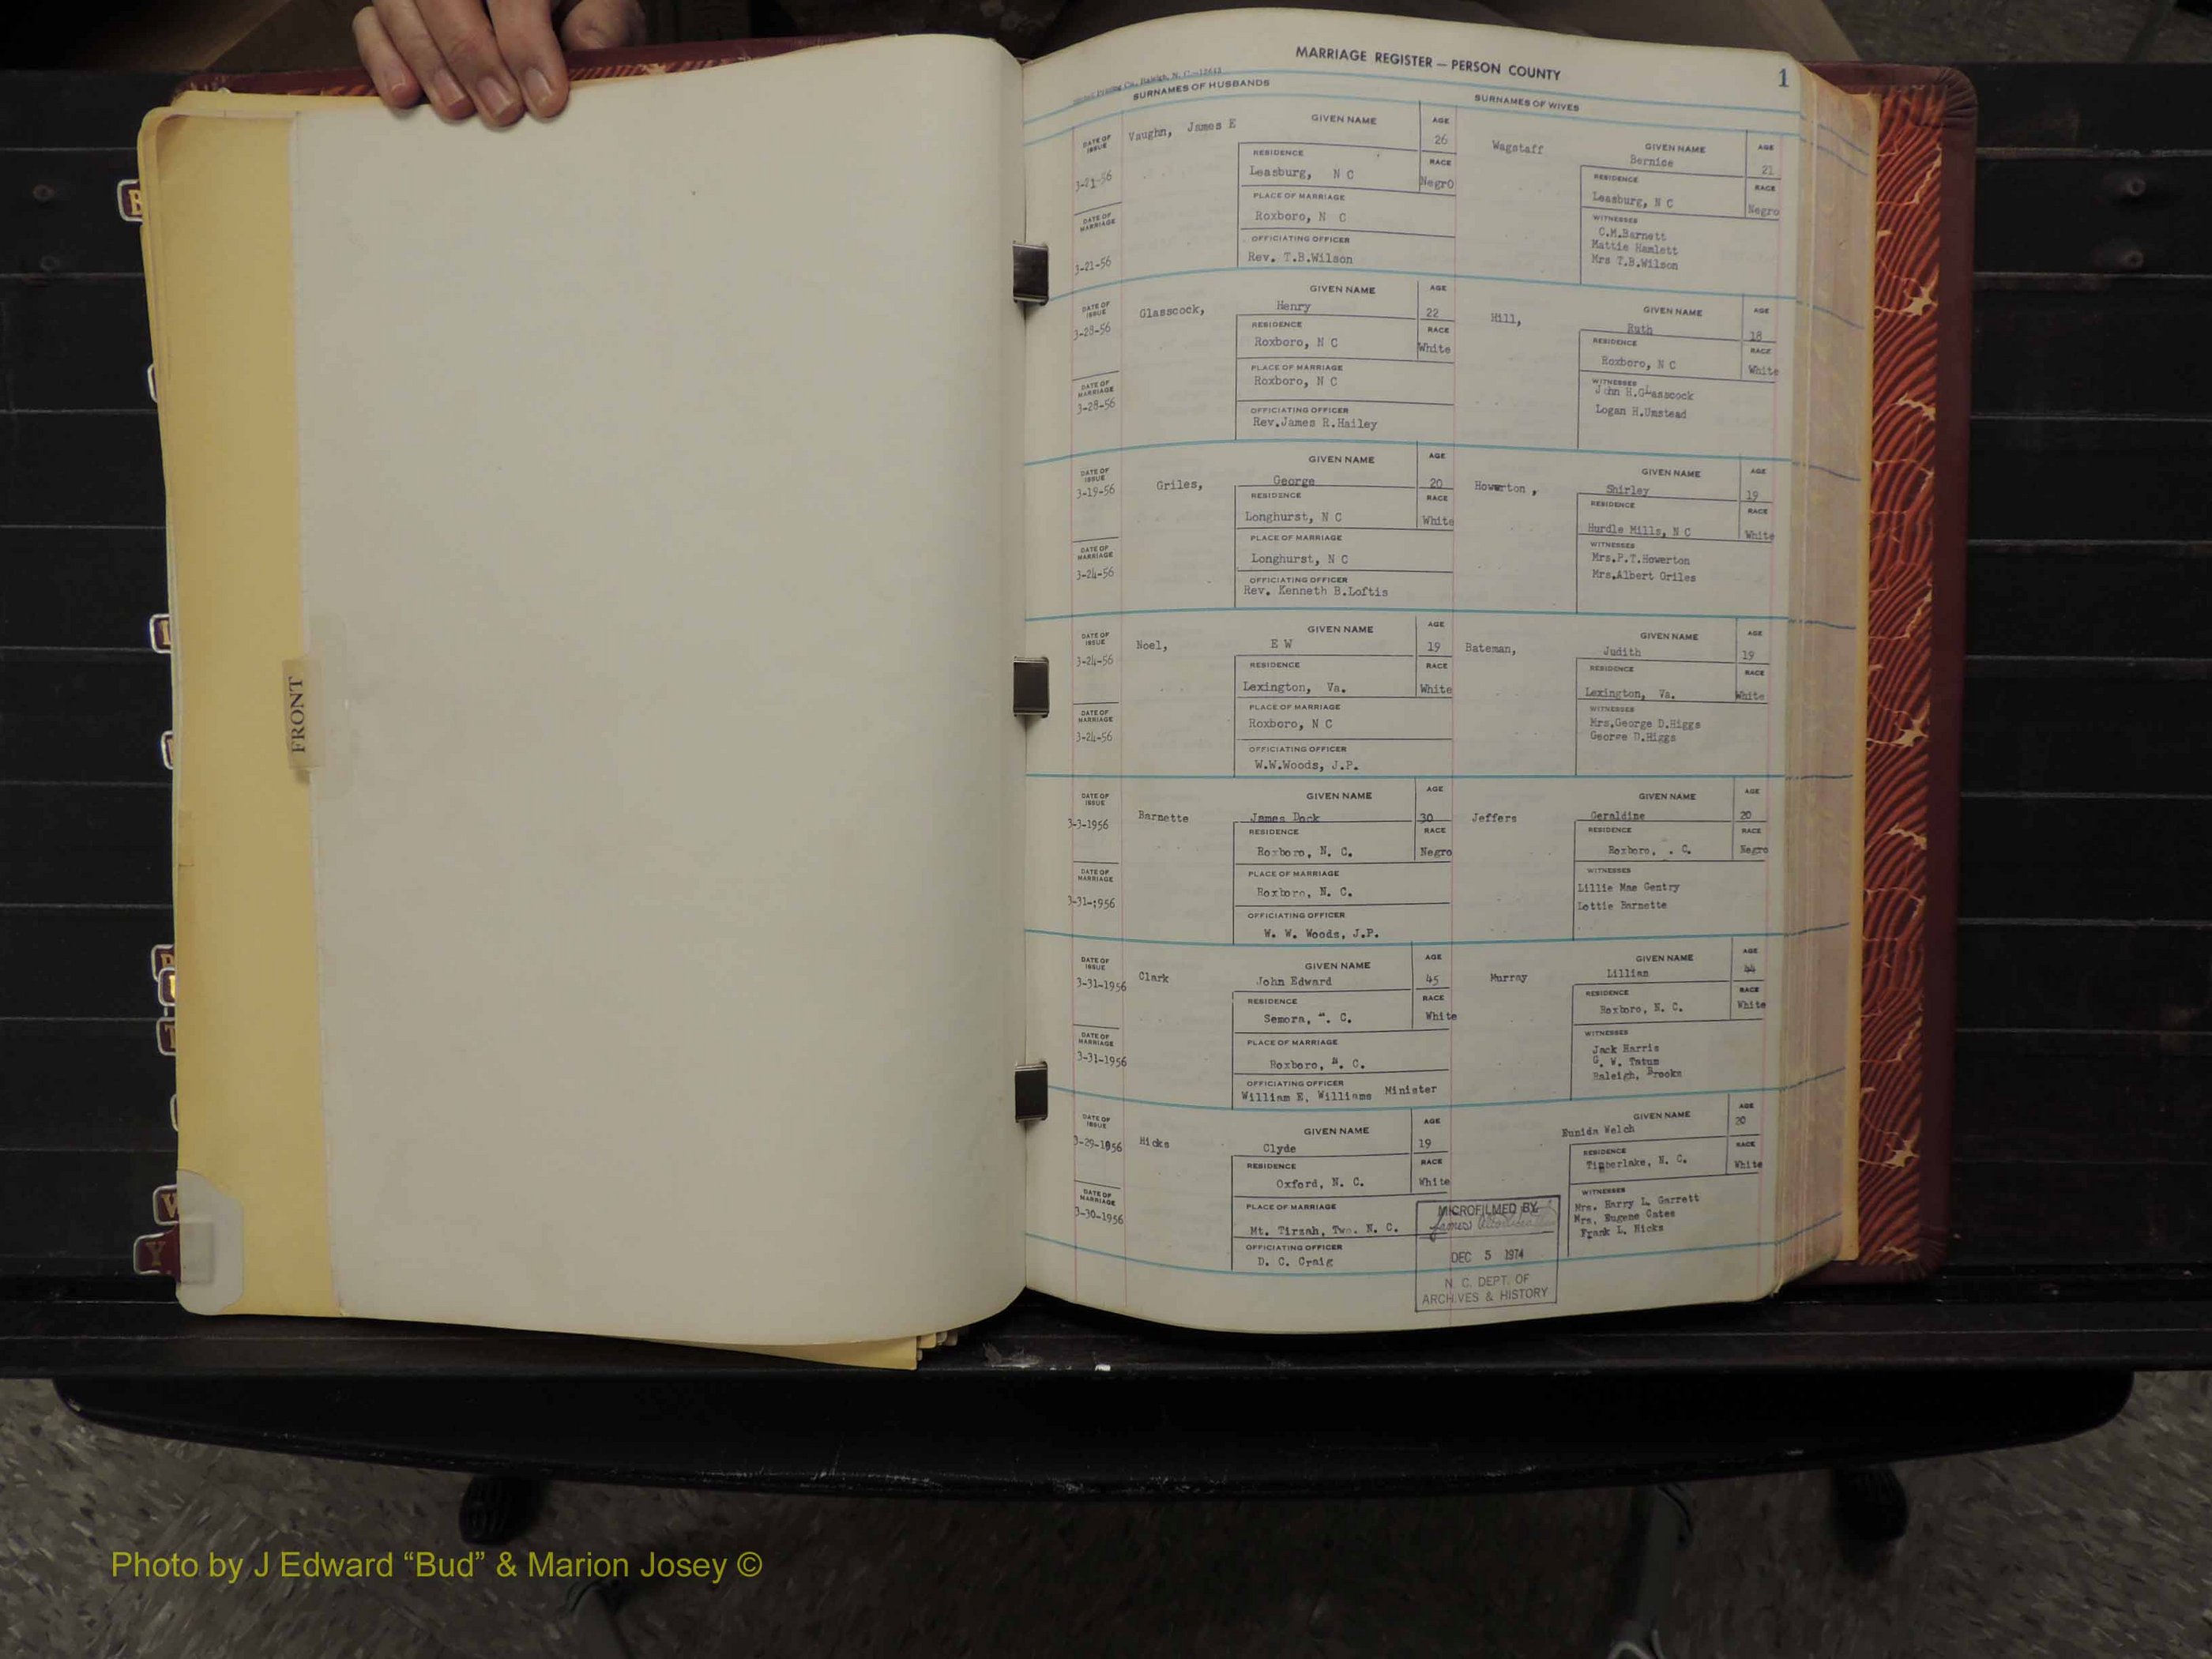 MARRIAGE REGISTER — PERSON COUNTY
1
SURNAMES OF HUSBANDS
SURNAMES OF WIVES
DATE OF ISSUE
Vaughn, James E
GIVEN NAME
AGE
26
RESIDENCE
Leasburg, N C
RACE
NegrO
PLACE OF MARRIAGE
Roxboro, N C
DATE OF MARRIAGE
3-21-56
OFFICIATING OFFICER
Rev. T.B.Wilson
Wagstaff
GIVEN NAME
Bernice
AGE
21
RESIDENCE
Leasburg, N C
RACE
Negro
WITNESSES
C.M.Barnett
Mattie Hamlett
Mrs T.B.Wilson
DATE OF ISSUE
3-28-56
Glasscock,
GIVEN NAME
Henry
AGE
22
RESIDENCE
Roxboro, N C
RACE
White
PLACE OF MARRIAGE
Roxboro, N C
DATE OF MARRIAGE
3-28-56
OFFICIATING OFFICER
Rev.James R.Hailey
Hill,
GIVEN NAME
Ruth
AGE
18
RESIDENCE
Roxboro, N C
RACE
White
WITNESSES
John H.GLasscock
Logan H.Umstead
DATE OF ISSUE
3-19-56
Griles,
GIVEN NAME
George
AGE
20
RESIDENCE
Longhurst, N C
RACE
White
PLACE OF MARRIAGE
Longhurst, N C
DATE OF MARRIAGE
3-24-56
OFFICIATING OFFICER
Rev. Kenneth B.Loftis
Howerton ,
GIVEN NAME
Shirley
AGE
19
RESIDENCE
Hurdle Mills, N C
RACE
White
WITNESSES
Mrs.P.T.Howerton
Mrs.Albert Griles
DATE OF ISSUE
3-24-56
Noel,
GIVEN NAME
E W
AGE
19
RESIDENCE
Lexington, Va.
RACE
White
PLACE OF MARRIAGE
Roxboro, N C
DATE OF MARRIAGE
3-24-56
OFFICIATING OFFICER
W.W.Woods, J.P.
Bateman,
GIVEN NAME
Judith
AGE
19
RESIDENCE
Lexington, Va.
RACE
White
WITNESSES
Mrs.George D.Higgs
George D.Higgs
DATE OF ISSUE
3-3-1956
Barnette
GIVEN NAME
James Dock
AGE
30
RESIDENCE
Roxboro, N. C.
RACE
Negro
PLACE OF MARRIAGE
Roxboro, N. C.
DATE OF MARRIAGE
3-31-1956
OFFICIATING OFFICER
W. W. Woods, J.P.
Jeffers
GIVEN NAME
Geraldine
AGE
20
RESIDENCE
Roxboro, . C.
RACE
Negro
WITNESSES
Lillie Mae Gentry
Lottie Barnette
DATE OF ISSUE
3-31-1956
Clark
GIVEN NAME
John Edward
AGE
45
RESIDENCE
Semora, N. C.
RACE
White
PLACE OF MARRIAGE
Roxboro, N. C.
DATE OF MARRIAGE
3-31-1956
OFFICIATING OFFICER
William E, Williams Minister
Murray
GIVEN NAME
Lillian
AGE
44
RESIDENCE
Roxboro, N. C.
RACE
White
WITNESSES
Jack Harris
G. W. Tatum
Raleigh, Brooks
DATE OF ISSUE
3-29-1956
Hicks
GIVEN NAME
Clyde
AGE
19
RESIDENCE
Oxford, N. C.
RACE
White
PLACE OF MARRIAGE
Mt. Tirzah, Twp. N. C.
DATE OF MARRIAGE
3-30-1956
OFFICIATING OFFICER
D. C. Craig
GIVEN NAME
Eunida Welch
AGE
20
RESIDENCE
Timberlake, N. C.
RACE
White
WITNESSES
Mrs. Harry L. Garrett
Mrs. Eugene Cates
Frank L. Hicks
MICROFILMED BY
DEC 5 1974
N. C. DEPT. OF
ARCHIVES & HISTORY
FRONT
W
Y
Photo by J Edward “Bud” & Marion Josey ©